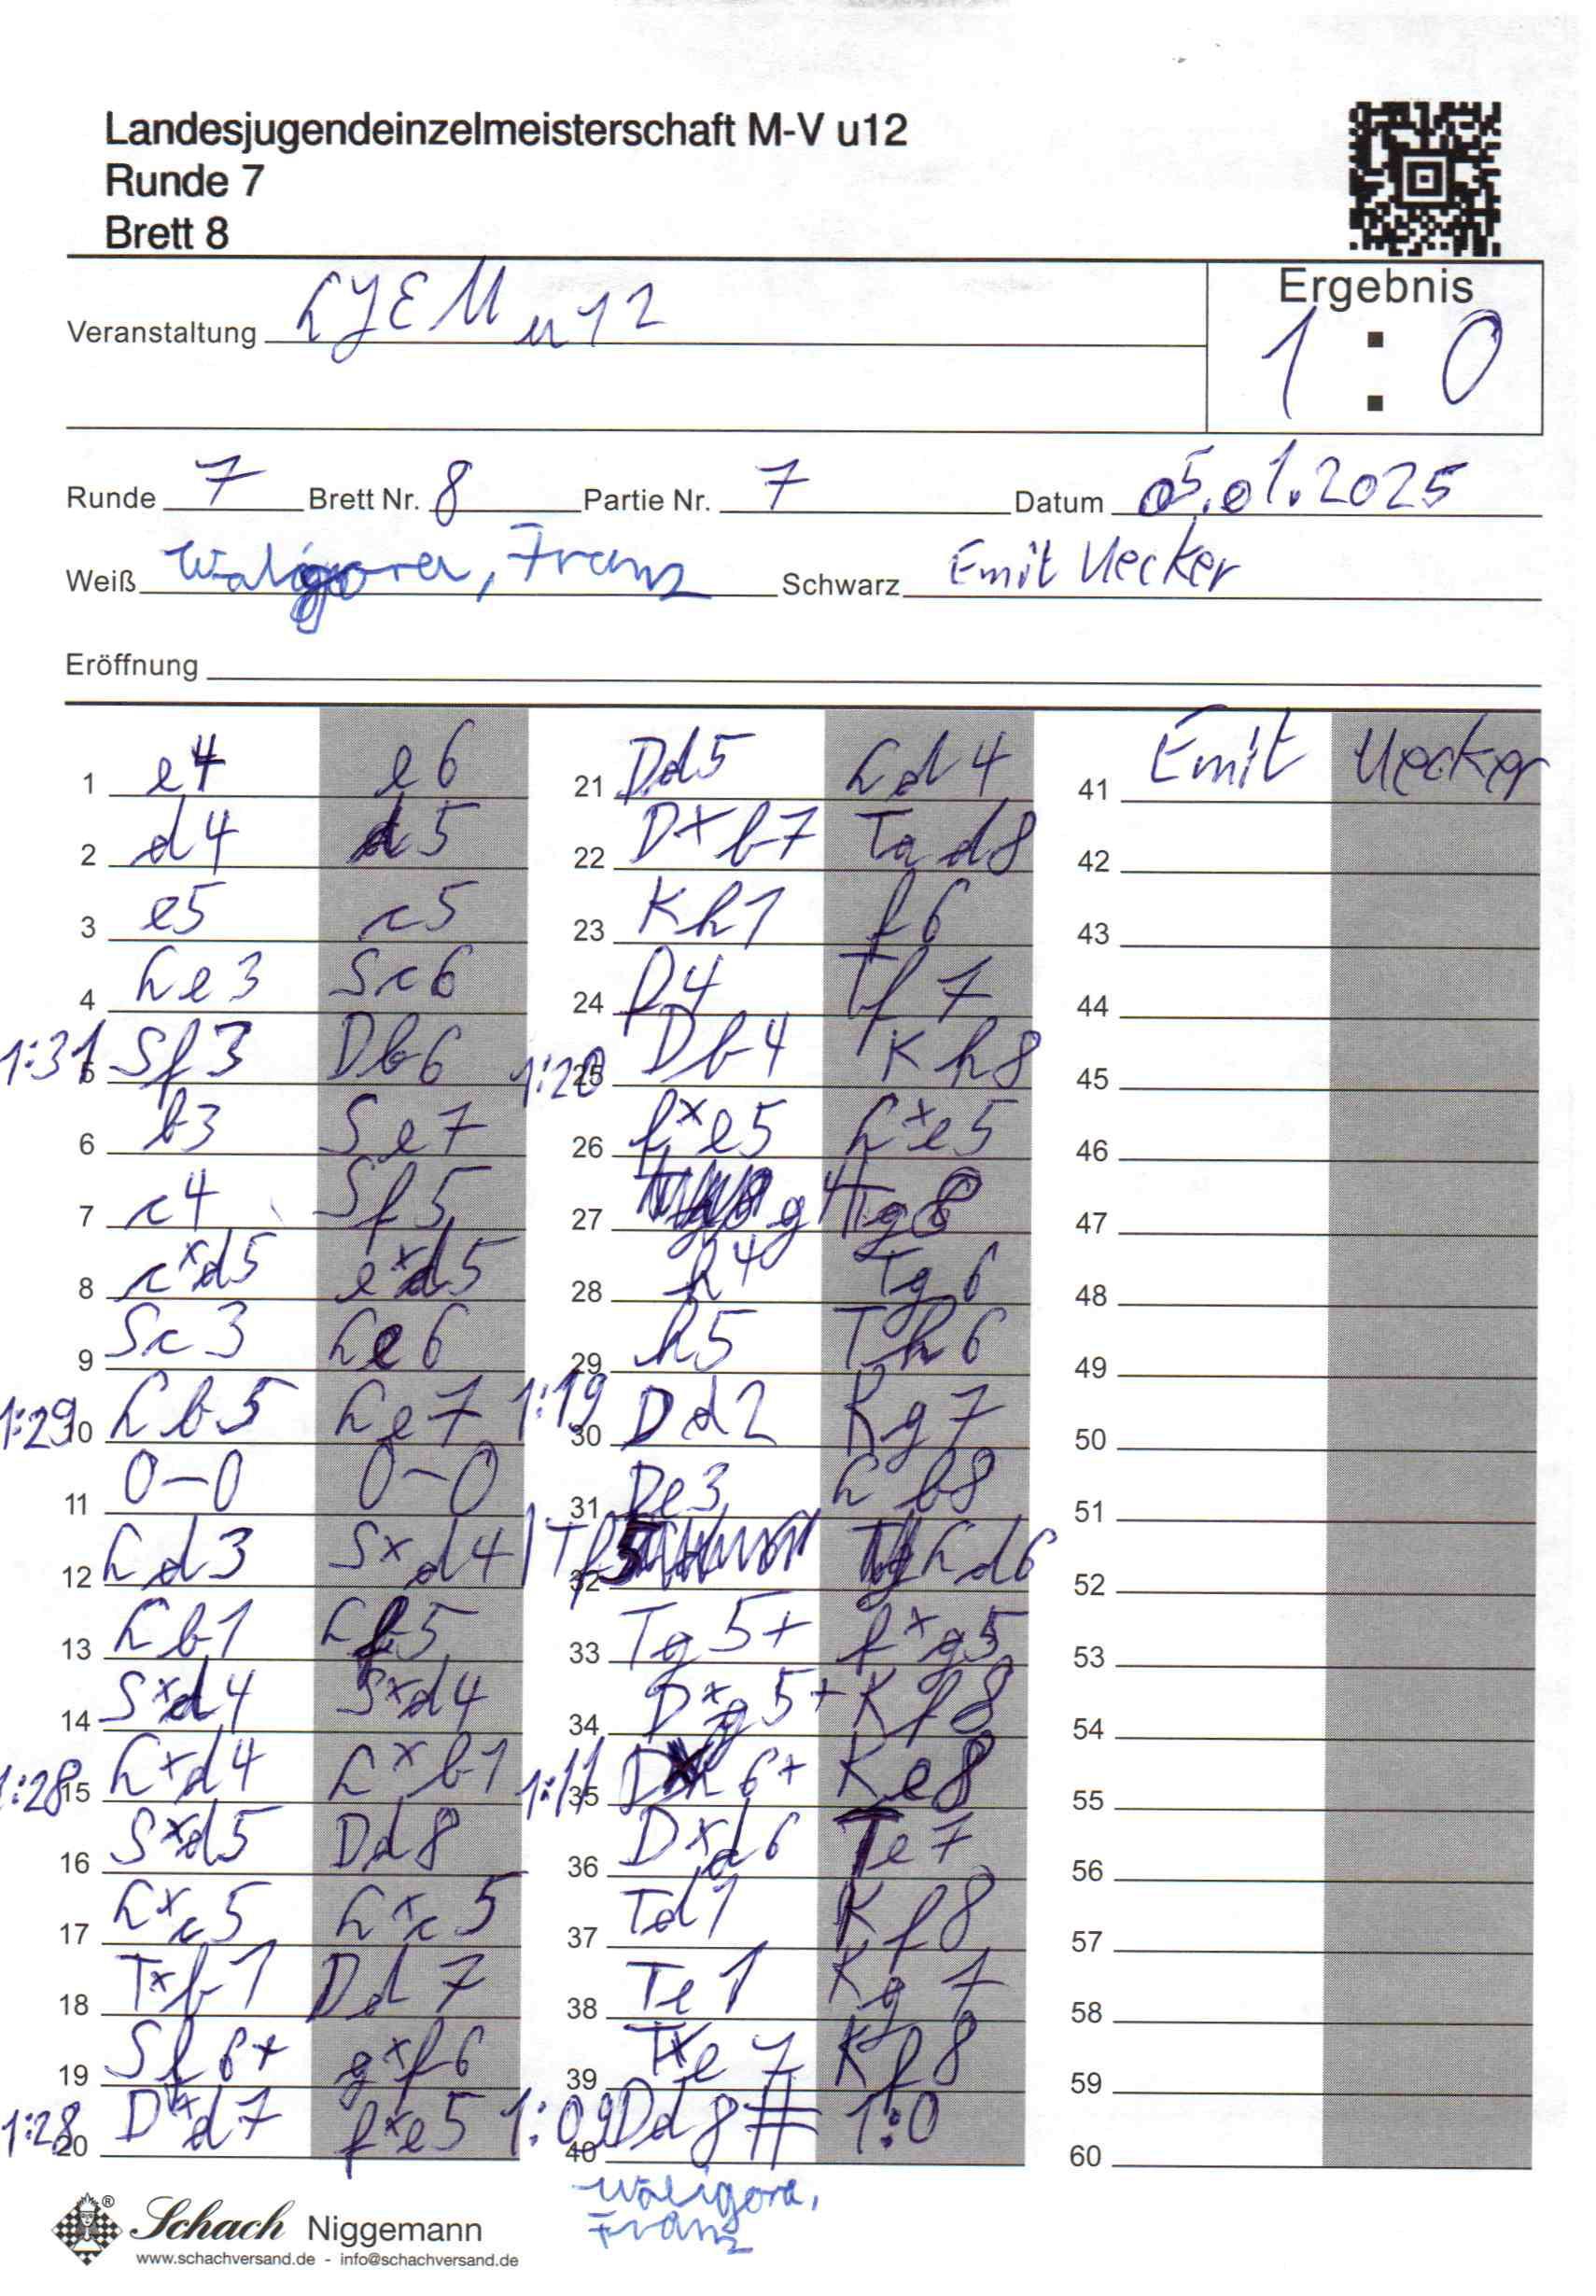 Landesjugendeinzelmeisterschaft M-V u12
Runde 7
Brett 8
Ergebnis
1 : 0
Veranstaltung LJEM u12
Runde 7 Brett Nr. 8 Partie Nr. 7 Datum 05.01.2025
Weiß Waligora, Franz Schwarz Emit Uecker
Eröffnung
1 e4 e6
2 d4 d5
3 e5 c5
4 Le3 Sc6
1:31 5 Sf3 Db6
6 b3 Se7
7 c4 Sf5
8 cxd5 exd5
9 Sc3 Le6
1:29 10 Lb5 Le7
11 0-0 0-0
12 Ld3 Sxd4
13 Lb1 Lf5
14 Sxd4 Sxd4
1:28 15 Lxd4 Lxb1
16 Sxd5 Dd8
17 Lxc5 Lxc5
18 Txb1 Dd7
19 Sf6+ gxf6
1:28 20 Dxd7 fxe5
21 Dd5 Ld4
22 Dxb7 Tad8
23 Kh1 f6
24 f4 Tf7
1:20 25 Db4 Kh8
26 fxe5 Lxe5
27 g4 Tg8
28 h4 Tg6
29 h5 Th6
1:19 30 Dd2 Kg7
31 De3 Lb8
32 Tf5 Ld6
33 Tg5+ fxg5
34 Dxg5+ Kf8
1:11 35 Dxh6+ Ke8
36 Dxd6 Te7
37 Td1 Kf8
38 Te1 Kg7
39 Txe7 Kf8
1:09 40 Dd8# 1:0
Waligora,
Franz
41 Emit Uecker
42
43
44
45
46
47
48
49
50
51
52
53
54
55
56
57
58
59
60
® Schach Niggemann
www.schachversand.de - info@schachversand.de